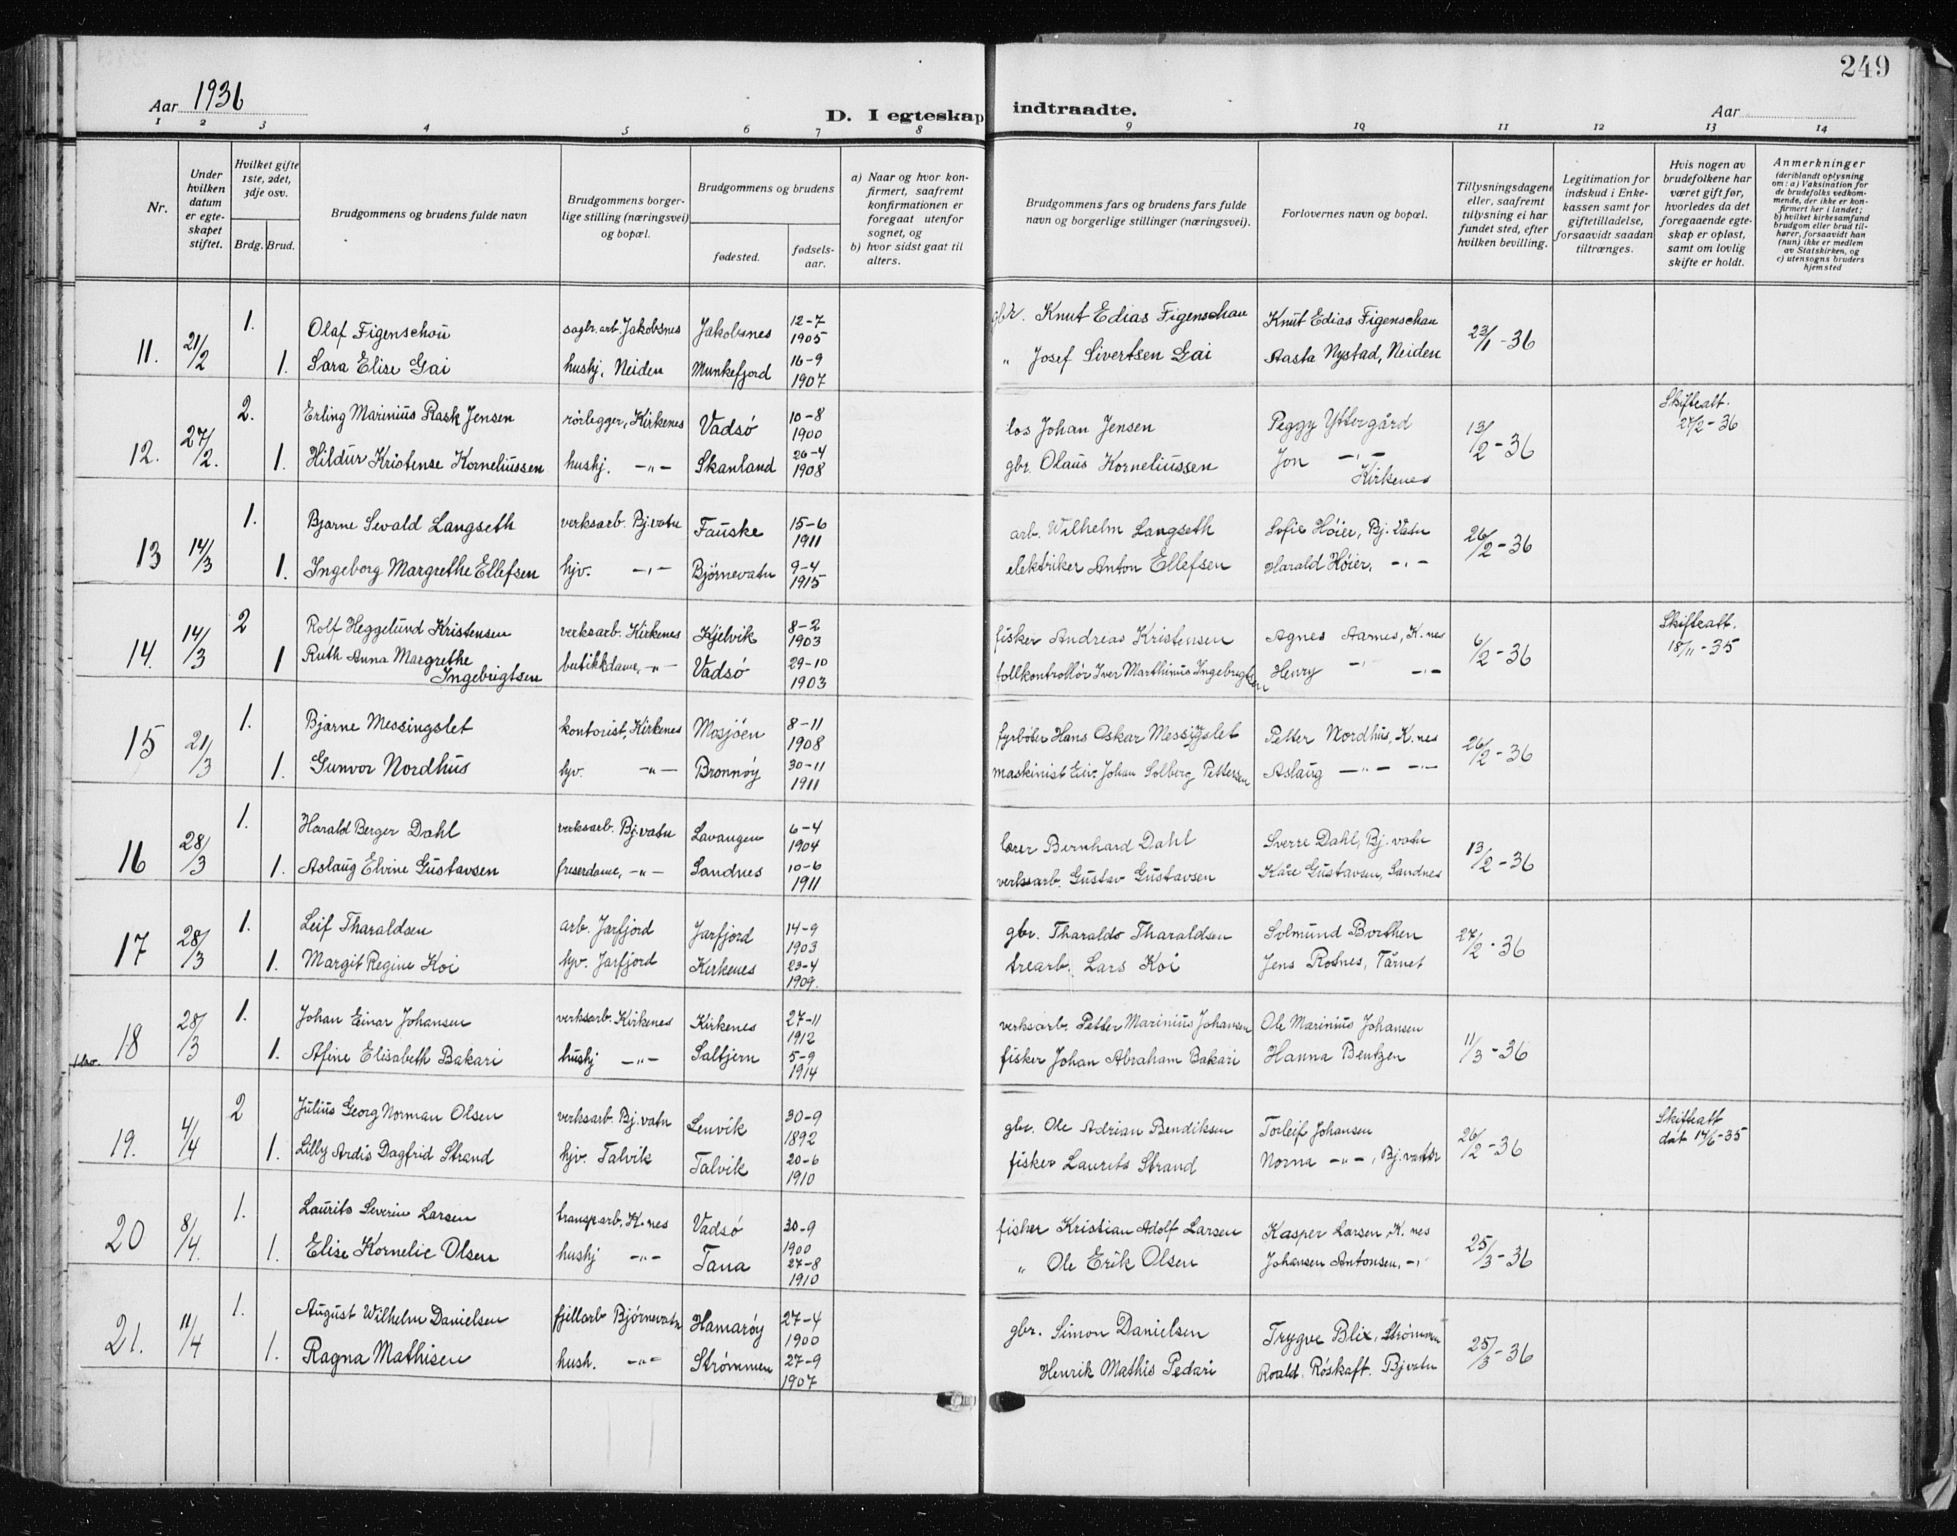 249
Aar 1936
D. I egteskap indtraadte.
Aar
1 2 3 4 5 6 7 8 9 10 11 12 13 14
Nr.
Under hvilken datum er egte-skapet stiftet.
Hvilket gifte 1ste, 2det, 3dje osv.
Brdg. Brud.
Brudgommens og brudens fulde navn
Brudgommens borger-lige stilling (næringsvei) og bopæl.
Brudgommens og brudens
fødested.
fødsels-aar.
a) Naar og hvor kon-firmert, saafremt konfirmationen er foregaat utenfor sognet, og
b) hvor sidst gaat til alters.
Brudgommens fars og brudens fars fulde navn og borgerlige stillinger (næringsvei).
Forlovernes navn og bopæl.
Tillysningsdagene eller, saafremt tillysning ei har fundet sted, efter hvilken bevilling.
Legitimation for indskud i Enke-kassen samt for giftetilladelse, forsaavidt saadan tiltrænges.
Hvis nogen av brudefolkene har været gift før, hvorledes da det foregaaende egte-skap er opløst, samt om lovlig skifte er holdt.
Anmerkninger
(deriblandt oplysning om: a) Vaksination for de brudefolks vedkom-mende, der ikke er kon-firmert her i landet;
b) hvilket kirkesamfund brudgom eller brud til-hører, forsaavidt han (hun) ikke er medlem av Statskirken, og
c) utensogns bruders hjemsted
11. 21/2 1. Olaf Figenschou sagbr. arb. Jakobsnes Jakobsnes 12-7 1905 gbr. Knut Edias Figenschau Knut Edias Figenschau 23/1-36
1. Sara Elise Gai hushj, Neiden Munkefjord 16-9 1907 " Josef Sivertsen Gai Aasta Nystad, Neiden
12. 27/2. 2. Erling Marinius Rask Jensen rørlegger, Kirkenes Vadsø 10-8 1900 los Johan Jensen Peggy Yttergård 13/2-36 Skifteatt. 27/2-36
1. Hildur Kristense Korneliussen hushj. -"- Skanland 26-4 1908 gbr. Olaus Korneliussen Jon -"- Kirkenes
13 14/3 1. Bjarne Sevald Langseth verksarb. Bj.vatn Fauske 15-6 1911 arb. Wilhelm Langseth Sofie Høier, Bj. Vatn 26/2-36
1. Ingeborg Margrethe Ellefsen hjv. -"- Bjørnevatn 9-4 1915 elektriker Anton Ellefsen Harald Høier, -"-
14. 14/3 2 Rolf Heggelund Kristensen verksarb. Kirkenes Kjelvik 8-2 1903 fisker Andreas Kristensen Agnes Aarnes, K.nes 6/2-36 Skifteatt. 18/11-35
1 Ruth Anna Margrethe Ingebrigtsen butikkdame, -"- Vadsø 29-10 1903 tollkontrollør Iver Marthinus Ingebrigtsen Henry -"- -"-
15 21/3 1. Bjarne Messingslet kontorist, Kirkenes Mosjøen 8-11 1908 fyrbøter Hans Oskar Messingslet Petter Nordhus, K.nes 26/2-36
1. Gunvor Nordhus hjv. -"- Brønnøy 30-11 1911 maskinist Eliv. Johan Solberg Pettersen Aslaug -"- -"-
16 28/3 1. Harald Berger Dahl verksarb. Bj.vatn Lavangen 6-4 1904 lærer Bernhard Dahl Sverre Dahl, Bj.vatn 13/2-36
1. Aslaug Elvine Gustavsen friserdame, -"- Sandnes 10-6 1911 verksarb. Gustav Gustavsen Kåre Gustavsen, Sandnes
17 28/3 1. Leif Tharaldsen arb. Jarfjord Jarfjord 14-9 1903 gbr. Tharalds Tharaldsen Solmund Borthen 27/2-36
1. Margit Regine Koi hjv. Jarfjord Kirkenes 23-4 1909. trearb. Lars Koi Jens Rotnes, Tårnet
18 28/3 1. Johan Einar Johansen verksarb. Kirkenes Kirkenes 27-11 1912 verksarb. Petter Marinius Johansen Ole Marinius Johansen 11/3-36
1. Afine Elisabeth Bakari hushj -"- Saltjern 5-9 1914 fisker Johan Abraham Bakari Hanna Bentzen
19. 4/4 2 Julius Georg Norman Olsen verksarb. Bj.vatn Lenvik 30-9 1892 gbr. Ole Adrian Bendiksen Torleif Johansen 26/2-36 Skifteatt dat 17/6-35
1. Lilly Ardis Dagfrid Strand hjv. Talvik Talvik 20-6 1910 fisker Laurits Strand Norna -"-, Bj.vatn
20 8/4. 1. Laurits Severin Larsen transp.arb. K.nes Vadsø 30-9 1900 fisker Kristian Adolf Larsen Kasper Larsen, K.nes 25/3-36
1. Elise Kornelie Olsen hushj -"- Tana 27-8 1910 " Ole Erik Olsen Johansen Antonsen, -"-
21. 11/4 1. August Wilhelm Danielsen fjellarb Bjørnevatn Hamarøy 27-4 1900 gbr. Simon Danielsen Trygve Blix, Strømmen 25/3-36
1. Ragna Mathisen hush. -"- Strømmen 27-9 1907 Henrik Mathis Pedari Roald Røskaft. Bjvatn